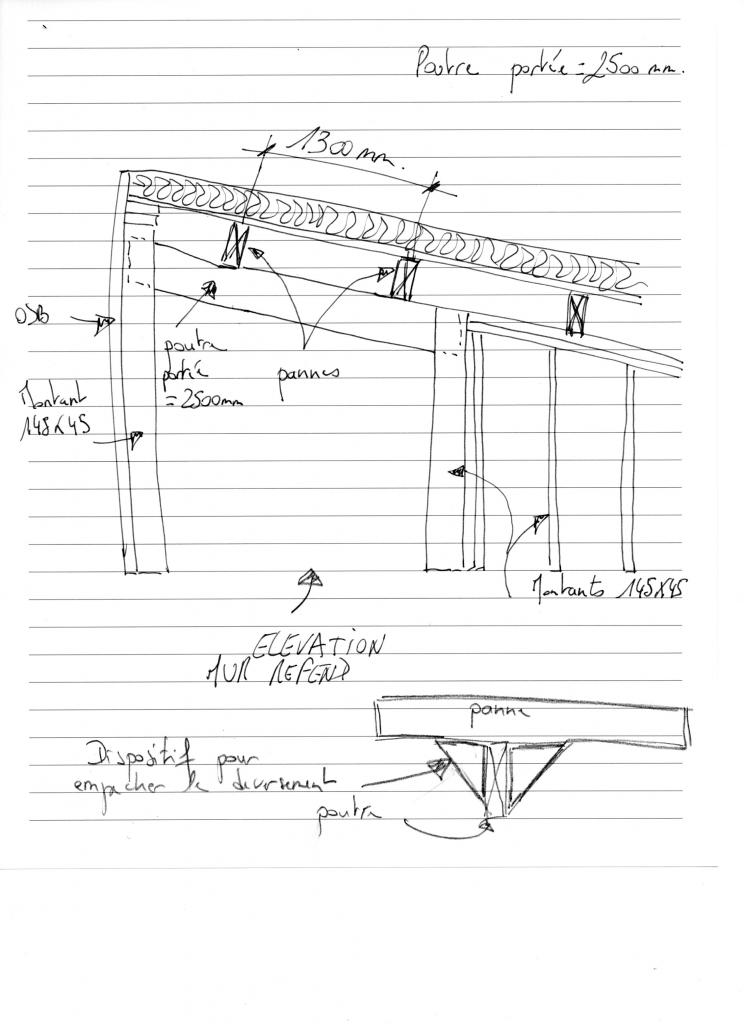 Poutre portée = 2500 mm.
1300 mm.
OSB
poutre
portée
= 2500mm
pannes
Montant
145x45
Montants 145x45
ELEVATION
MUR REFEND
panne
Dispositif pour
empecher le deversement
poutre